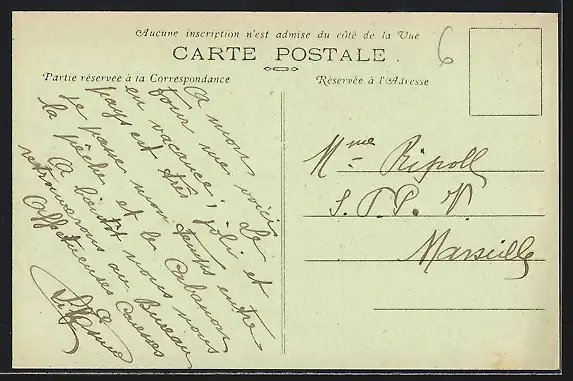 Aucune inscription n'est admise du côté de la Vue
CARTE POSTALE
6
Partie réservée à la Correspondance
Réservée à l'Adresse
A mon
tour me voici
en vacance, Le
pays est très joli et
je passe mon temps entre
la pêche et le Cabanon
A bientôt nous nous
retrouverons au Bureau
Affectueuses Caresses
Mme Ripoll
S. P. V.
Marseille